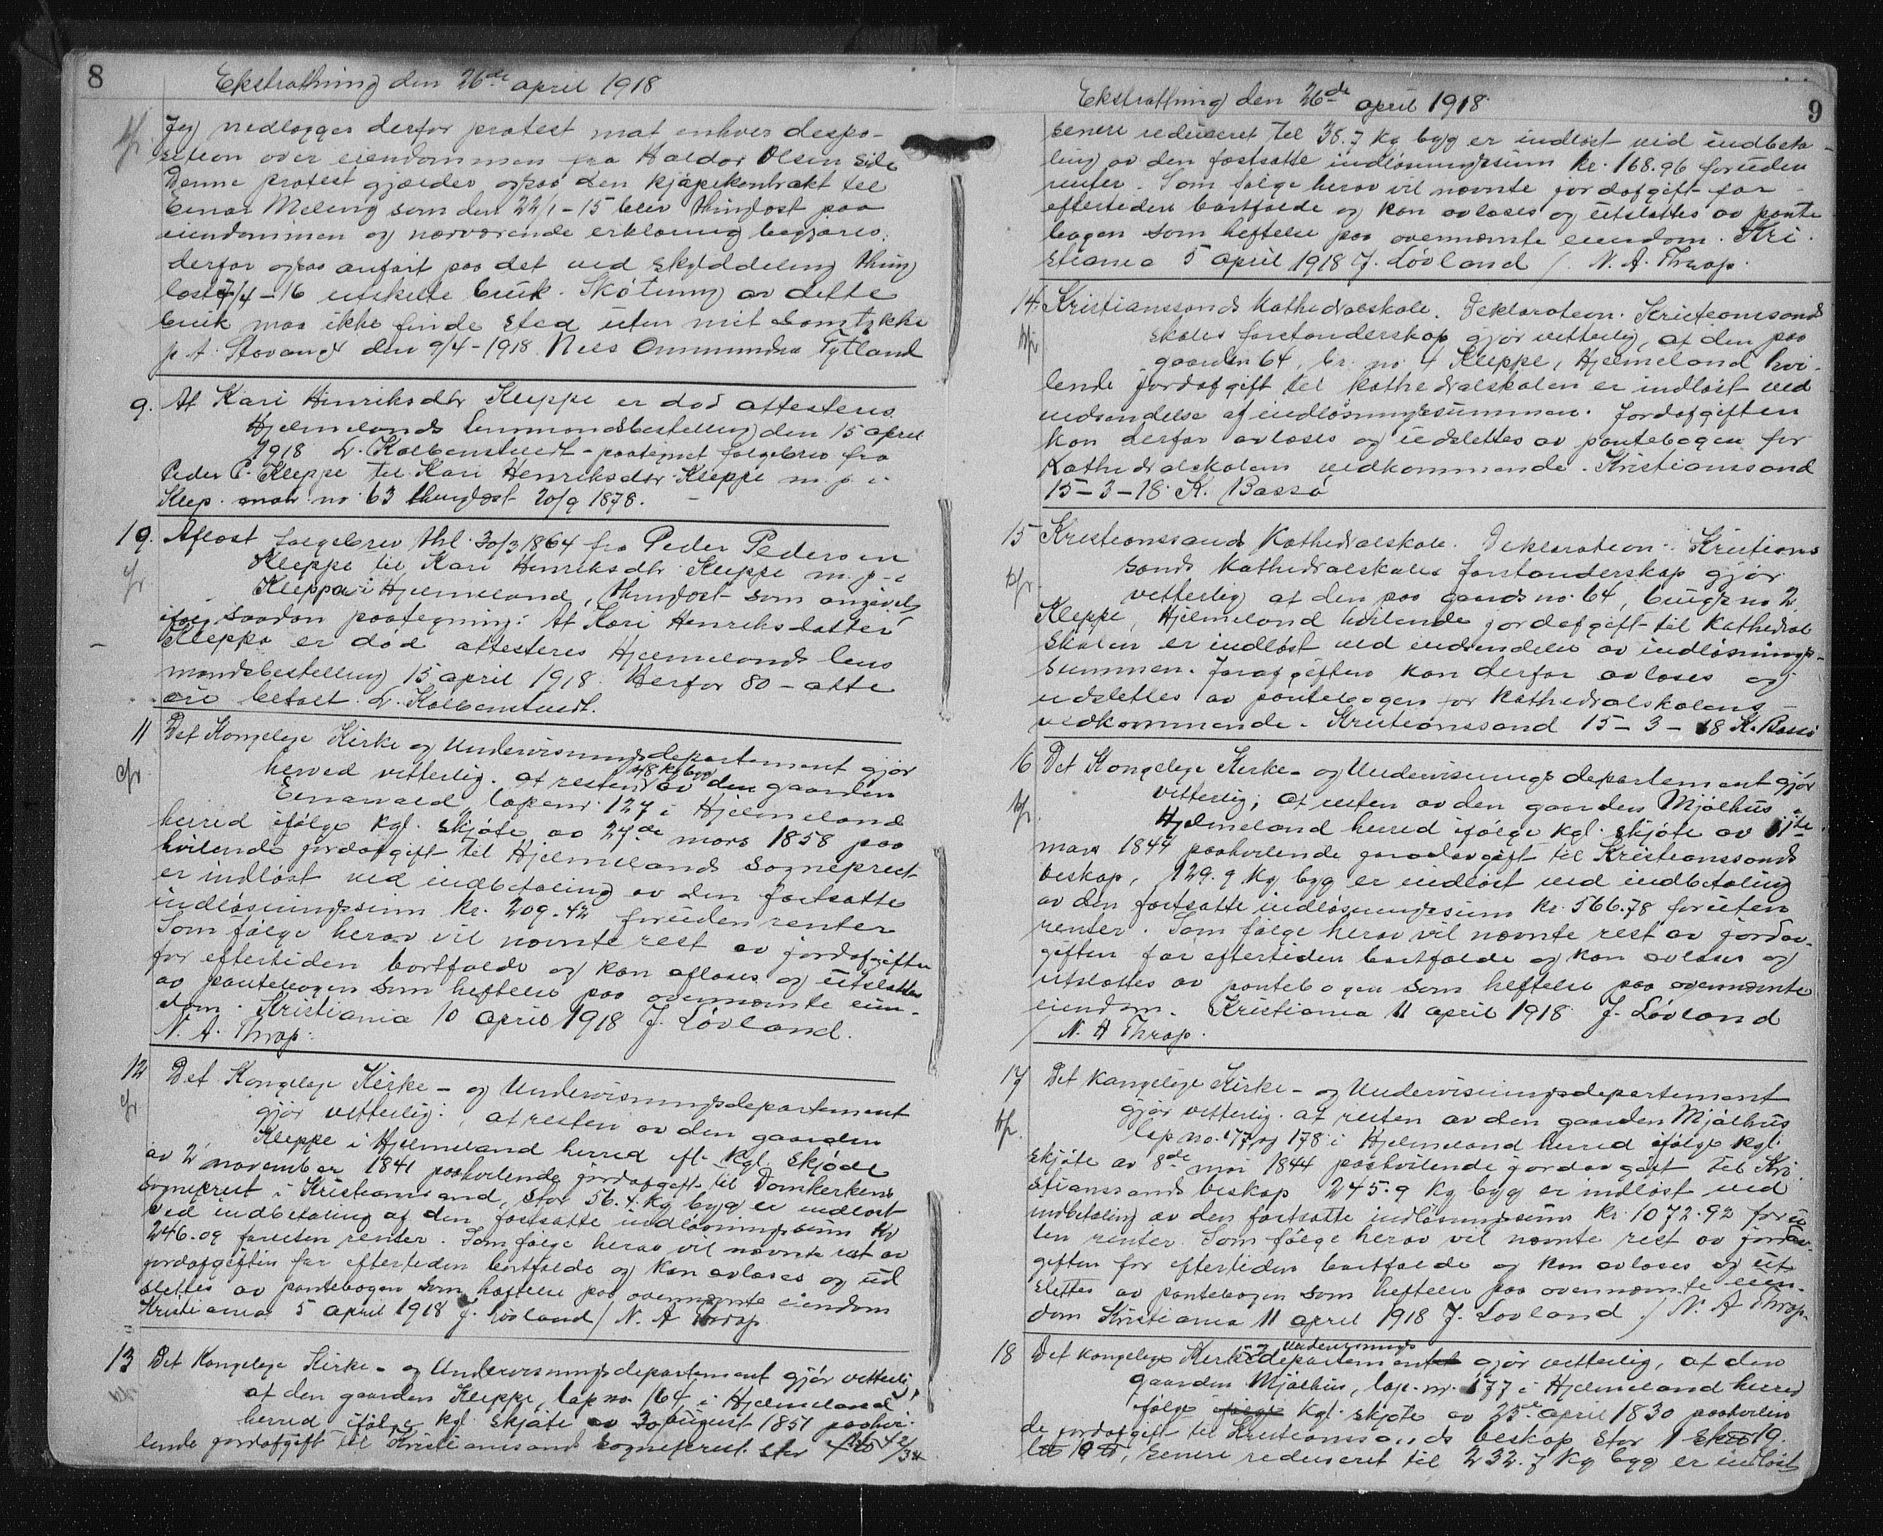 8
Ekstratning den 26de april 1918
Jeg nedlægger derfor protest mot enhver despo-
sition over eiendommen fra Haldor Olsen side
Denne protest gjælder ogsaa den kjøpekontrakt til
Einar Meling som den 22/1-15 blev thinglæst paa
eiendommen og nærværende erklæring begjæres
derfor ogsaa anført paa det ved skylddeling thing
læst 7/4-16 utskilte bruk. Skøtning av dette
bruk maa ikke finde sted uten mit samtykke
p. t. Stavanger den 9/4-1918 Nils Ommundsen Tytland
9. At Kari Henriksdtr Kleppe er død attesteres
Hjelmelands lensmandsbestilling den 15 april
1918 L. Kolbenstvedt - paategnet følgebrev fra
Peder P. Kleppe til Kari Henriksdtr Kleppe m. p. i
Klep. matr. no 63 thinglæst 20/9 1878.
10. Aflæst følgebrev thl. 30/3 1864 fra Peder Pedersen
Kleppe til Kari Henriksdtr Kleppe m. p. i
Kleppe i Hjelmeland, thinglæst som angivet,
ifølge saadan paategning: At Kari Henriksdatter
Kleppe er død attesteres Hjelmelands lens
mandsbestilling 15 april 1918. Herfor 80 - otti
øre betalt. L. Kolbenstvedt.
11 Det Kongelige Kirke og Undervisningsdepartement gjør
herved vitterlig: at resten 48 kg byg av den gaarden
Eenevald, løpenr. 127 i Hjelmeland
herred ifølge kgl. skjøte av 27de mars 1858 paa
hvilende jordavgift til Hjelmelands sogneprest
er indløst ved indbetaling av den fastsatte
indløsningssum kr. 209.42 foruden renter
Som følge herav vil nævnte rest av jordafgiften
for eftertiden bortfalde og kan aflæses og utslettes
av pantebogen som heftelse paa ovennævnte eien-
dom. Kristiania 10 april 1918 J. Løvland.
N. A. Thrap.
12 Det Kongelige Kirke- og Undervisningsdepartement
gjør vitterlig: at resten av den gaarden
Kleppe i Hjelmeland herred efl. kgl. skjøde
av 2 november 1841 paahvilende jordafgift til Domkirkens
sogneprest i Kristianssand, stor 56.4 kg byg er indløst
ved indbetaling af den fastsatte indløsningssum kr
246.09 foruten renter. Som følge herav vil nævnte rest av
jordafgiften for eftertiden bortfalde og kan avlæses og ud
slettes av pantebogen som heftelse paa ovennævnte eiendom
Kristiania 5 april 1918 J. Løvland / N. A. Thrap
13 Det Kongelige Kirke- og Undervisningsdepartement gjør vitterlig
at den gaarden Kleppe, løp no. 164, i Hjelmeland
herred ifølge kgl. skjøte av 30 august 1851 paahvi-
lende jordafgift til Kristianssand sogneprest. stor
9
Ekstratning den 26de april 1918.
senere reduseret til 38.7 kg byg er indløst ved indbeta-
ling av den fastsatte indløsningssum kr. 168.96 foruden
renter. Som følge herav vil nævnte jordafgift for
eftertiden bortfalde og kan avlæses og utslettes av pante
bogen som heftelse paa ovennævnte eiendom. Kri
stiania 5 april 1918 J. Løvland / N. A. Thrap.
14. Kristianssands Kathedralskole. Deklaration. Kristianssands
skoles forstanderskap gjør vitterlig, at den paa
gaarden 64, br. no 4 Kleppe, Hjelmeland hvi-
lende jordafgift til Kathedralskolen er indløst ved
indsendelse af indløsningssummen. Jordafgiften
kan derfor avlæses og udslettes av pantebogen for
Kathedralskolens vedkommende. Kristianssand
15-3-18. K. Bassø
15 Kristianssands Kathedralskole. Deklaration. Kristians
sands Kathedralskoles forstanderskap gjør
vitterlig at den paa gaards no. 64, brugs no 2
Kleppe, Hjelmeland hvilende jordafgift til Kathedral
skolen er indløst ved indsendelse av indløsnings-
summen. Jordafgiften kan derfor avlæses og
udslettes av pantebogen for Kathedralskolens
vedkommende. Kristianssand 15-3-18 K. Bassø
16 Det Kongelige Kirke- og Undervisnings departement gjør
vitterlig; at resten av den gaarden Mjølhus i
Hjelmeland herred ifølge kgl. skjøte av
mars 1844 paahvilende jordavgift til Kristianssands
biskop, 129.9 kg byg er indløst ved indbetaling
av den fastsatte indløsningssum kr. 566.78 foruten
renter. Som følge herav vil nævnte rest av jordav-
giften for eftertiden bortfalde og kan avlæses og
utslettes av pantebogen som heftelse paa ovennævnte
eiendom. Kristiania 11 april 1918. J. Løvland
/ N. A Thrap.
17 Det Kongelige Kirke- og Undervisningsdepartement
gjør vitterlig: at resten av den gaarden Mjølhus
løp no. 177 og 178 i Hjelmeland herred ifølge kgl.
skjøte av 8de mai 1844 paahvilende jordavgift til Kri
stianssands biskop 245.9 kg byg er indløst ved
indbetaling av den fastsatte indløsningssum kr. 1072.92 foru
ten renter. Som følge herav vil nævnte rest av jordav-
giften for eftertiden bortfalde og kan avlæses og ut
slettes av pantebogen som heftelse paa ovennævnte eien-
dom Kristiania 11 april 1918 J. Løvland / N. A Thrap.
18 Det kongelige Kirke og Undervisnings departement gjør vitterlig, at den
gaarden Mjølhus, løp. nr. 177 i Hjelmeland herred
ifølge kgl. skjøte av 25de april 1830 paahvilen
de jordafgift til Kristianssands biskop stor 1
senere reduseret til 232.7 kg byg er indløst